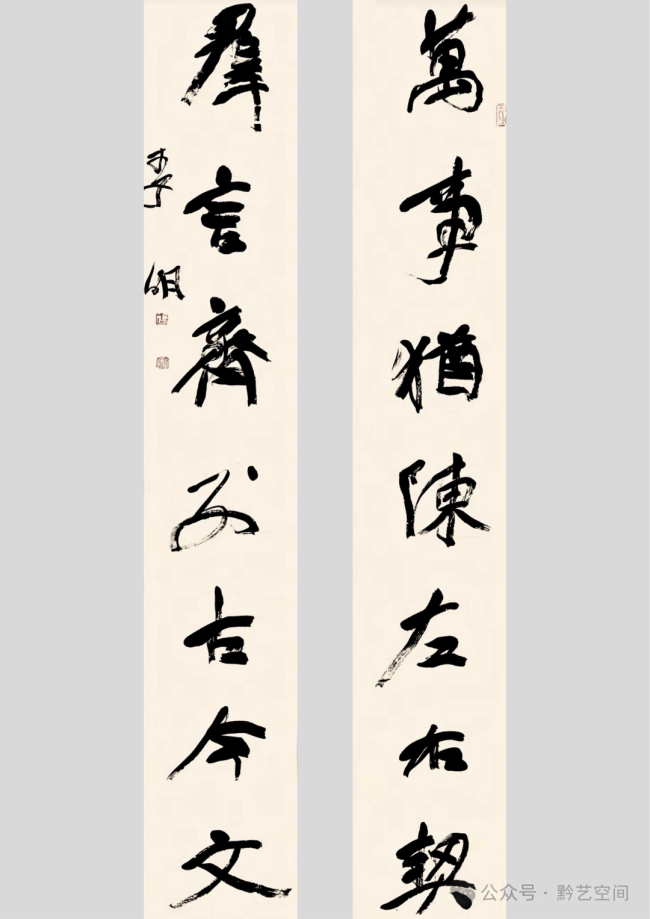 萬事猶陳左右契
羣言齊列古今文
李明
公众号 · 黔艺空间